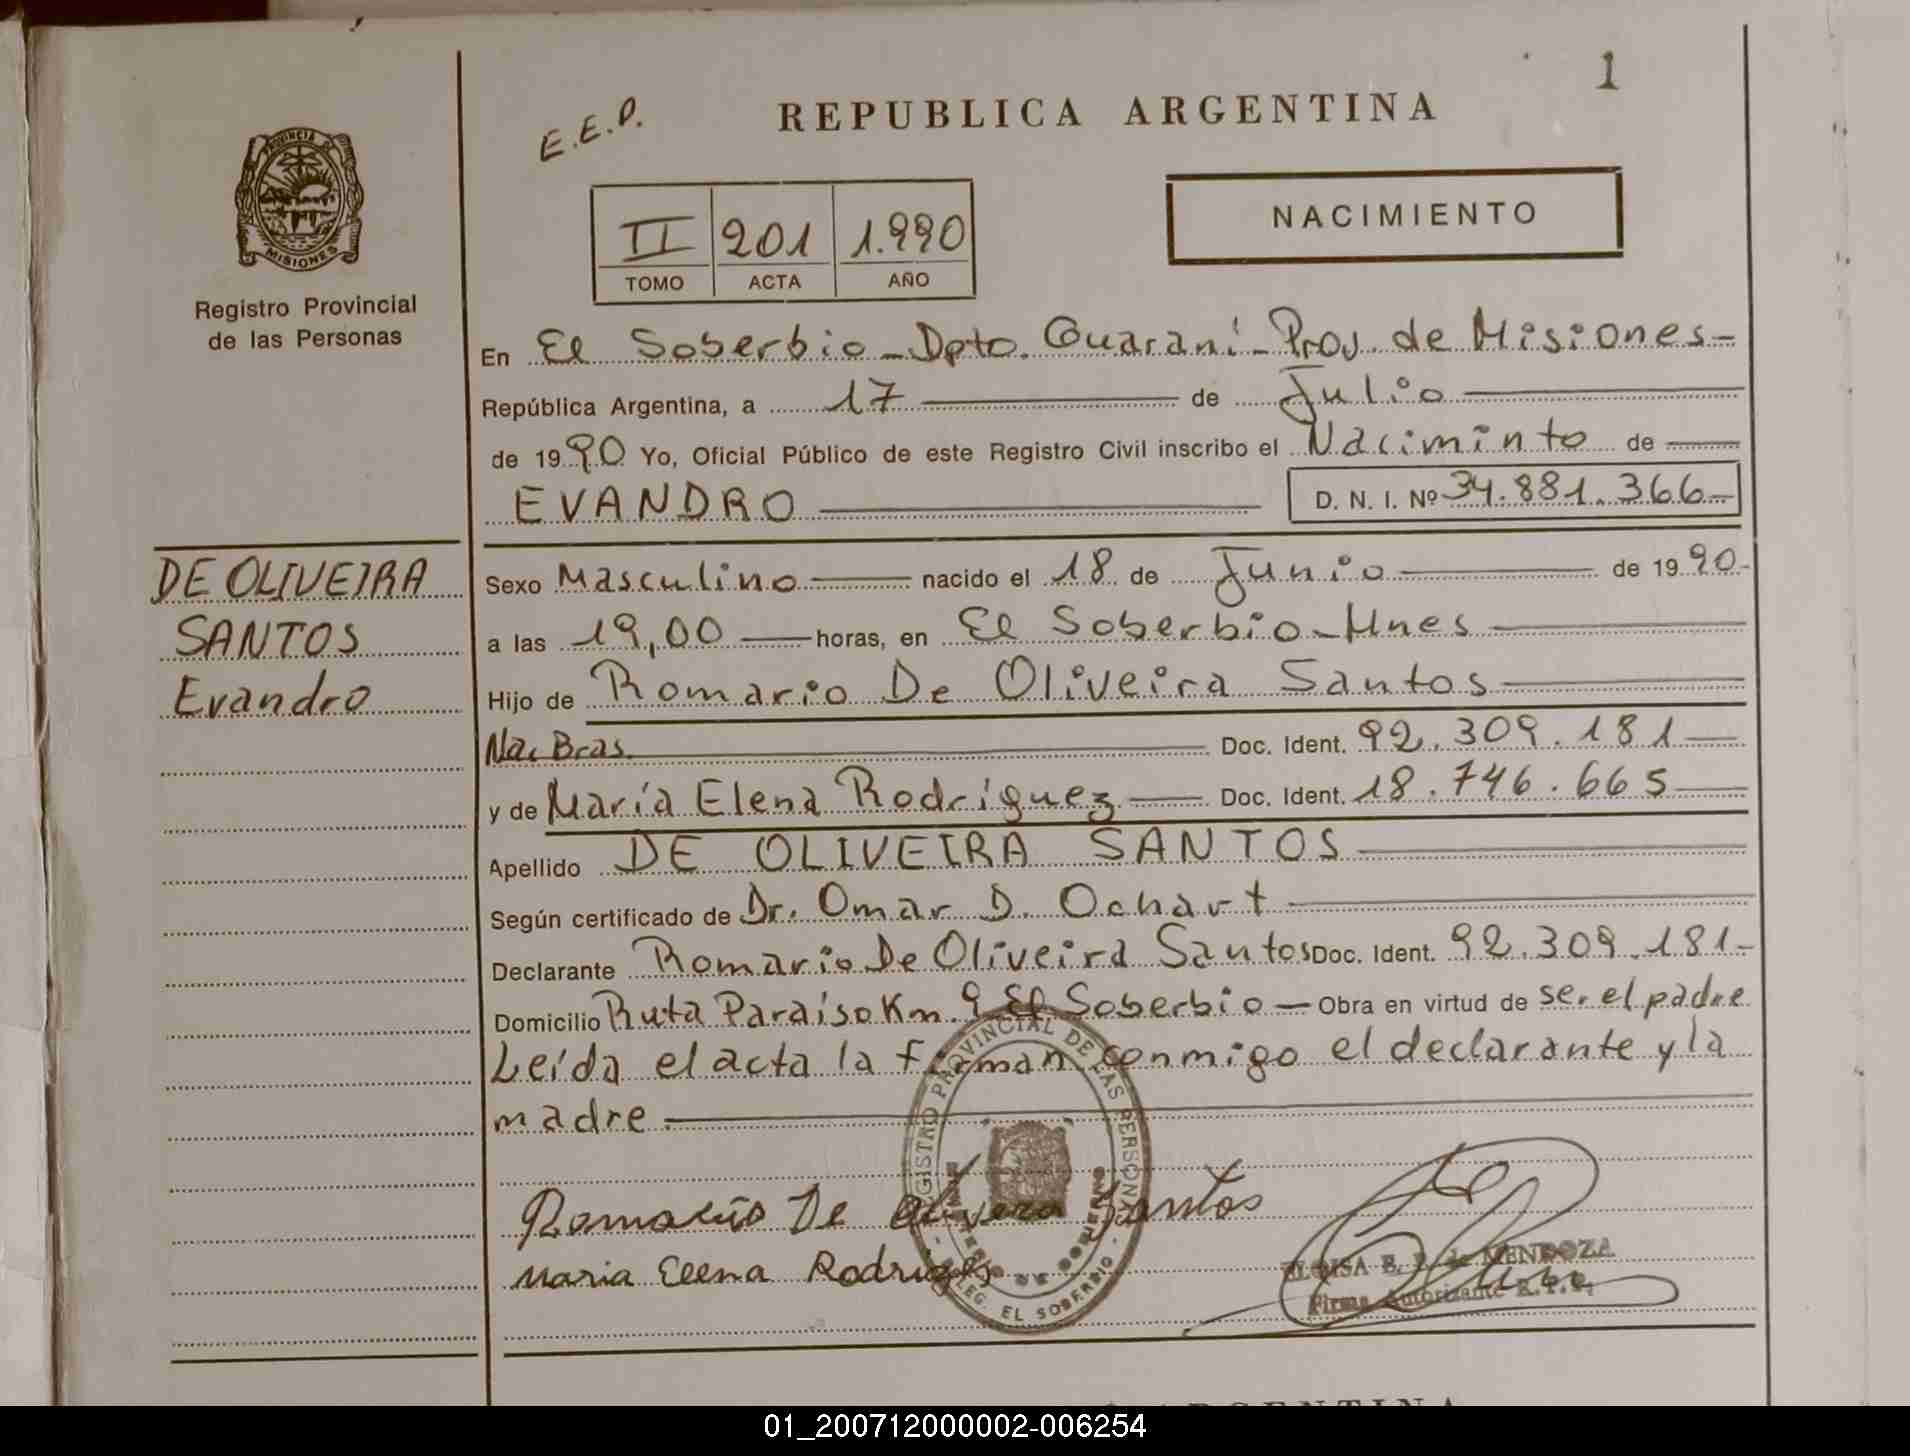 1
E.E.D.
REPUBLICA ARGENTINA
PROVINCIA DE
MISIONES
Registro Provincial
de las Personas
II 201 1.990
TOMO ACTA AÑO
NACIMIENTO
En El Soberbio - Dpto. Guaraní - Prov. de Misiones -
República Argentina, a 17 de Julio
de 1990 Yo, Oficial Público de este Registro Civil inscribo el Naciminto de
EVANDRO D. N. I. Nº 34.881.366 -
DE OLIVEIRA
SANTOS
Evandro
Sexo Masculino nacido el 18 de Junio de 1990 -
a las 19,00 horas, en El Soberbio - Mnes
Hijo de Romario De Oliveira Santos
Nac Bras. Doc. Ident. 92.309.181
y de María Elena Rodríguez Doc. Ident. 18.746.665
Apellido DE OLIVEIRA SANTOS
Según certificado de Dr. Omar D. Ochart
Declarante Romario De Oliveira Santos Doc. Ident. 92.309.181 -
Domicilio Ruta Paraíso Km. 9 El Soberbio - Obra en virtud de ser el padre
Leída el acta la firman conmigo el declarante y la
madre
REGISTRO PROVINCIAL DE LAS PERSONAS
DELEG. EL SOBERBIO
Romario De Olivera Santos
Maria Elena Rodrigues
ELOISA E. P. de MENDOZA
Firma Autorizante R.P.P.
ARGENTINA
01_200712000002-006254